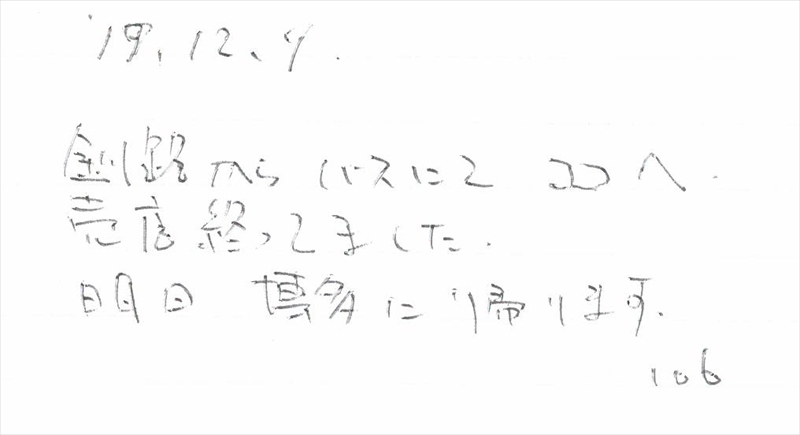 '19.12.4.
釧路からバスにて ココへ.
売店終ってました.
明日 博多に帰ります.
106